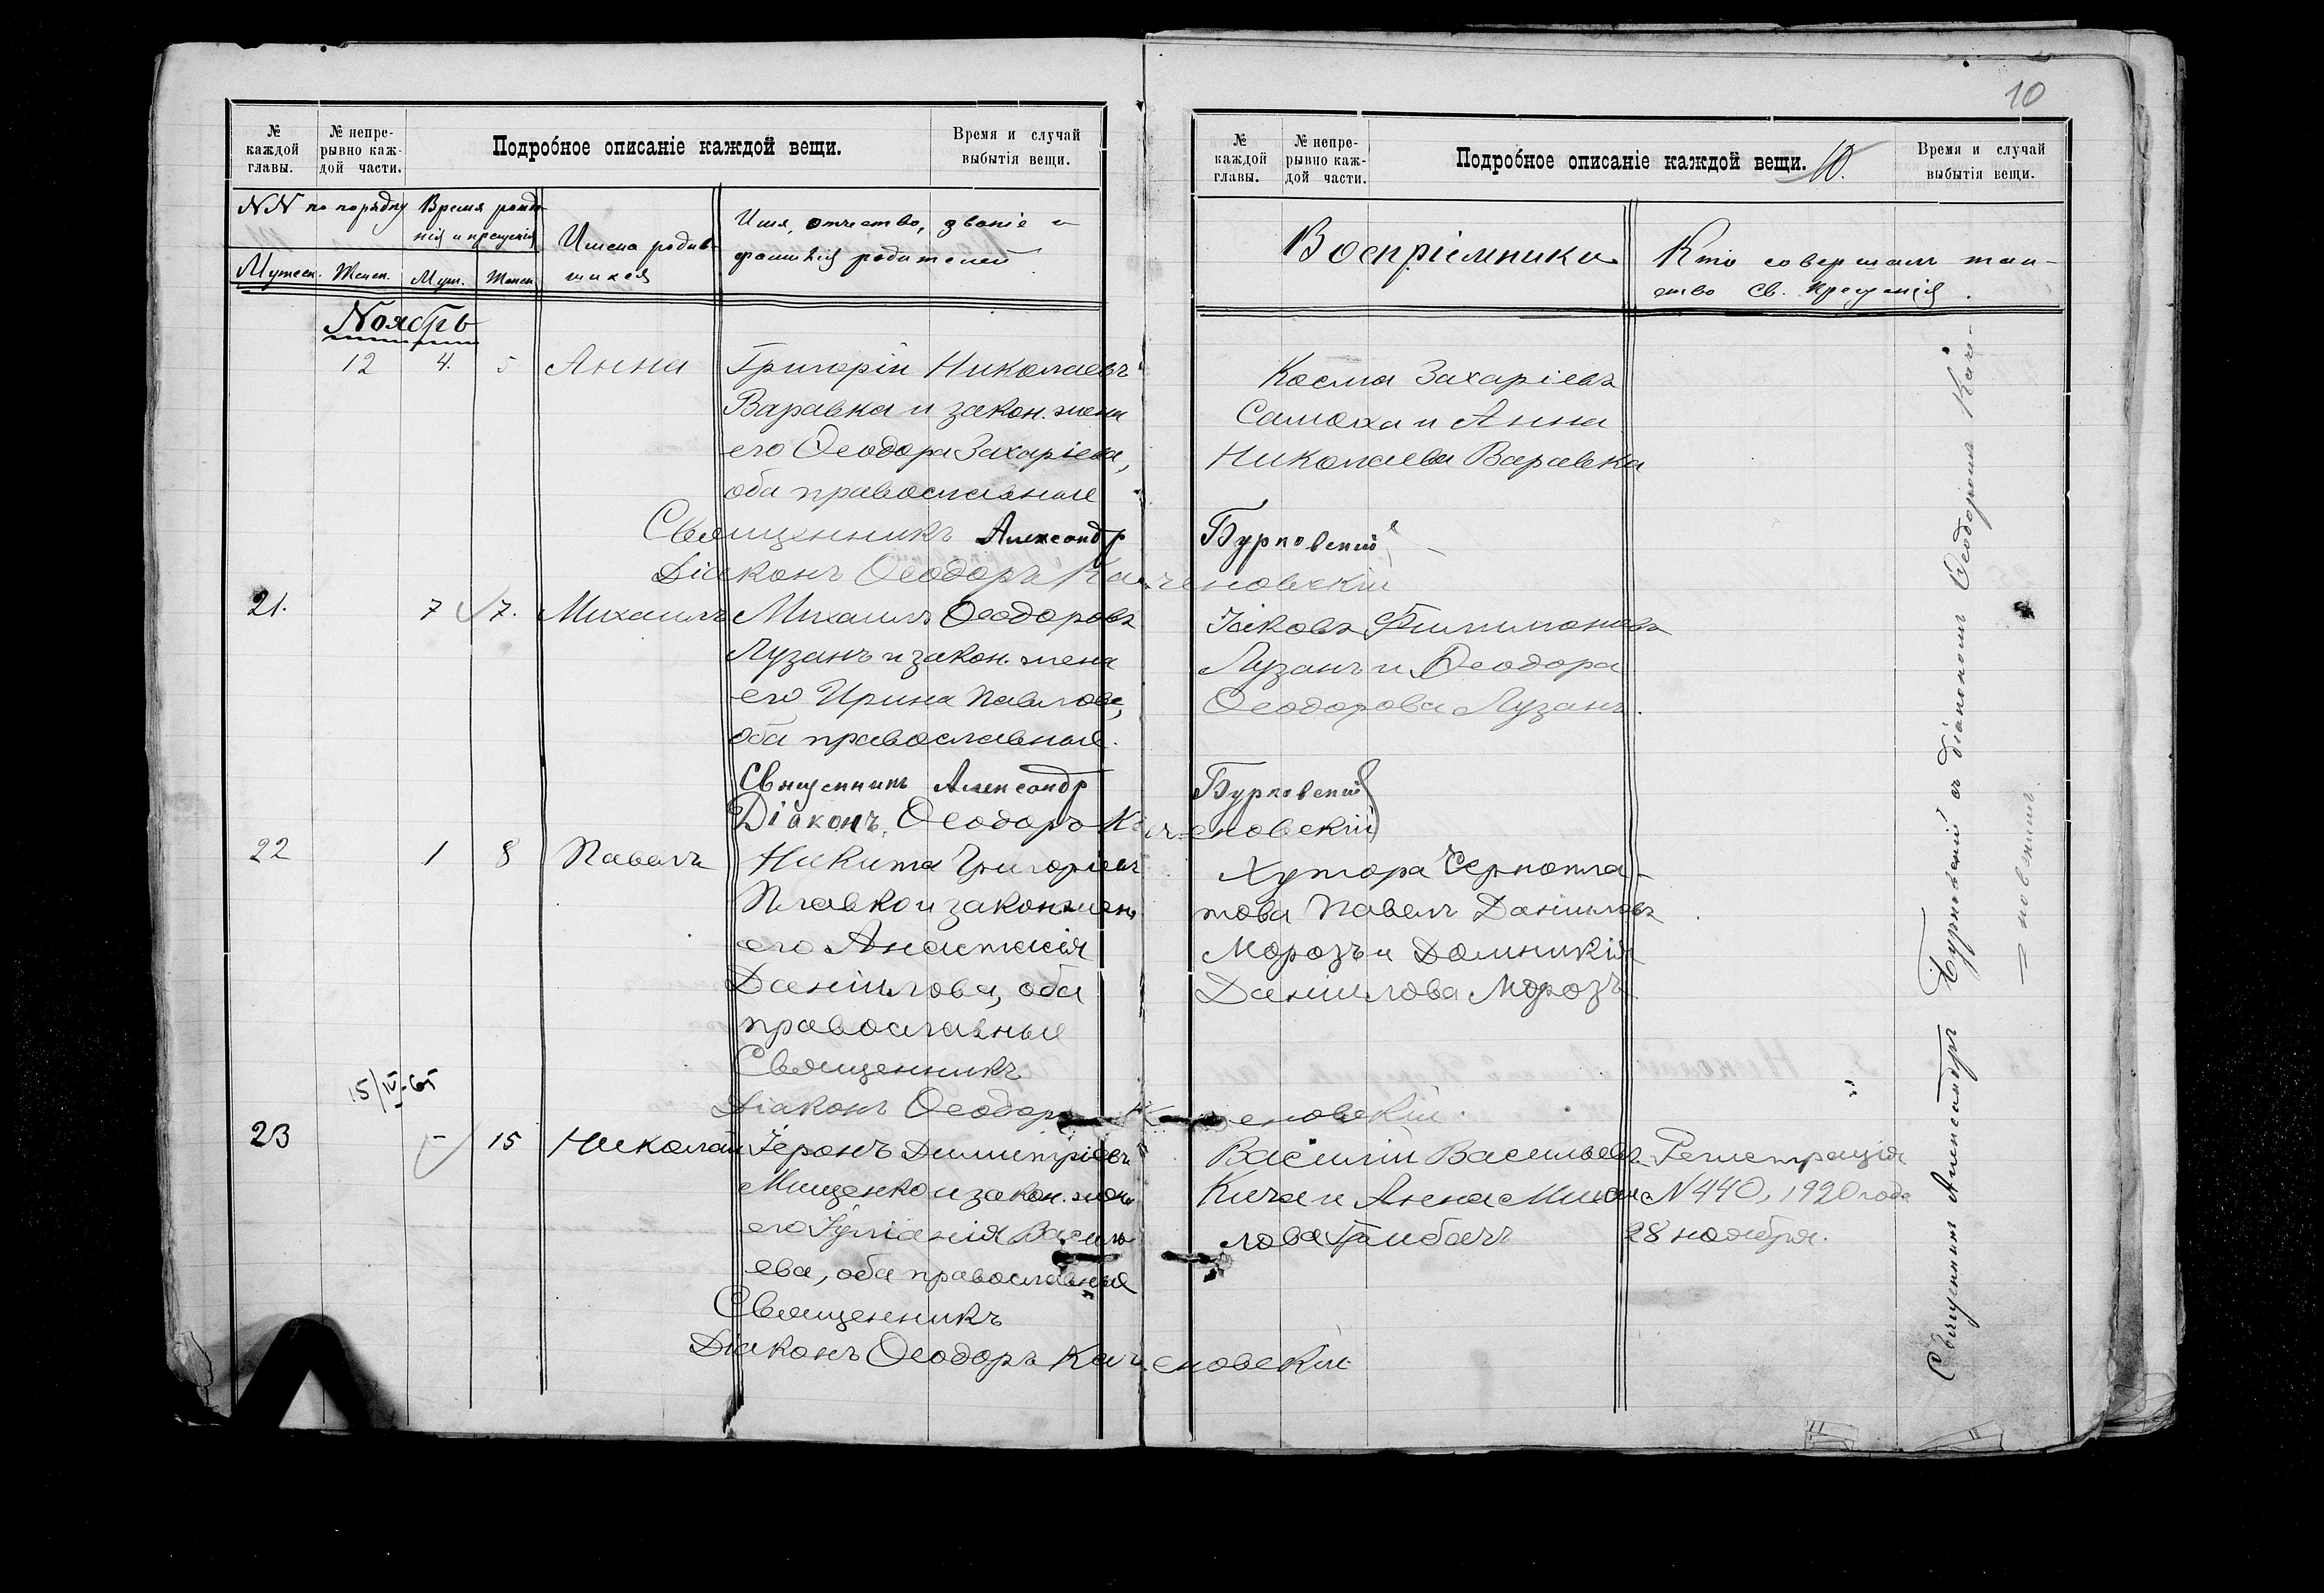 10
№ каждой главы.
№ непре-рывно каж-дой части.
Подробное описаніе каждой вещи.
Время и случай выбытія вещи.
NN по порядку
Время рожде-
нія и крещенія
Имена родив-
шихся
Имя, отчество, званіе и
фамилія родителей
Мужеск. Женск. Муж. Женск.
Ноябрь
12 4. 5 Анна Григорій Николаевъ
Варавка и закон. жена
его Ѳеодора Захаріева,
оба православные
Священникъ Александр Бурковский
Діаконъ Ѳеодоръ Каченовскій
21. 7 7. Михаилъ Михаилъ Ѳеодоровъ
Лузанъ и закон. жена
его Ирина Павлова,
оба православные.
Священник Александр Бурковский
Діаконъ Ѳеодоръ Каченовскій
22 1 8 Павелъ Никита Григоріевъ
Плавко и закон. жена
его Анастасія
Даніилова, оба
православные
Священникъ
Діаконъ Ѳеодоръ Каченовскій.
15/IV-65
23 15 Николай Іеронъ Димитріевъ
Мищенко и закон. жена
его Іуліанія Василь
ева, оба православные
Священникъ
Діаконъ Ѳеодоръ Каченовскій
№ каждой главы.
№ непре-рывно каж-дой части.
Подробное описаніе каждой вещи.
10.
Время и случай выбытія вещи.
Воспріемники
Кто совершалъ таи-
ство Св. Крещенія.
Косма Захаріевъ
Самоха и Анна
Николаева Варавка
Іаковъ Филимоновъ
Лузанъ и Ѳеодора
Ѳеодорова Лузанъ.
Хутора Черпотла-
това Павелъ Даніиловъ
Морозъ и Домникія
Даніилова Морозъ
Василій Васильевъ
Кича и Анна
лова
Регистрація
N 440, 1920 года
28 ноября.
Священник Александръ Бурковский съ діаконом Ѳеодором Каче-
= новским